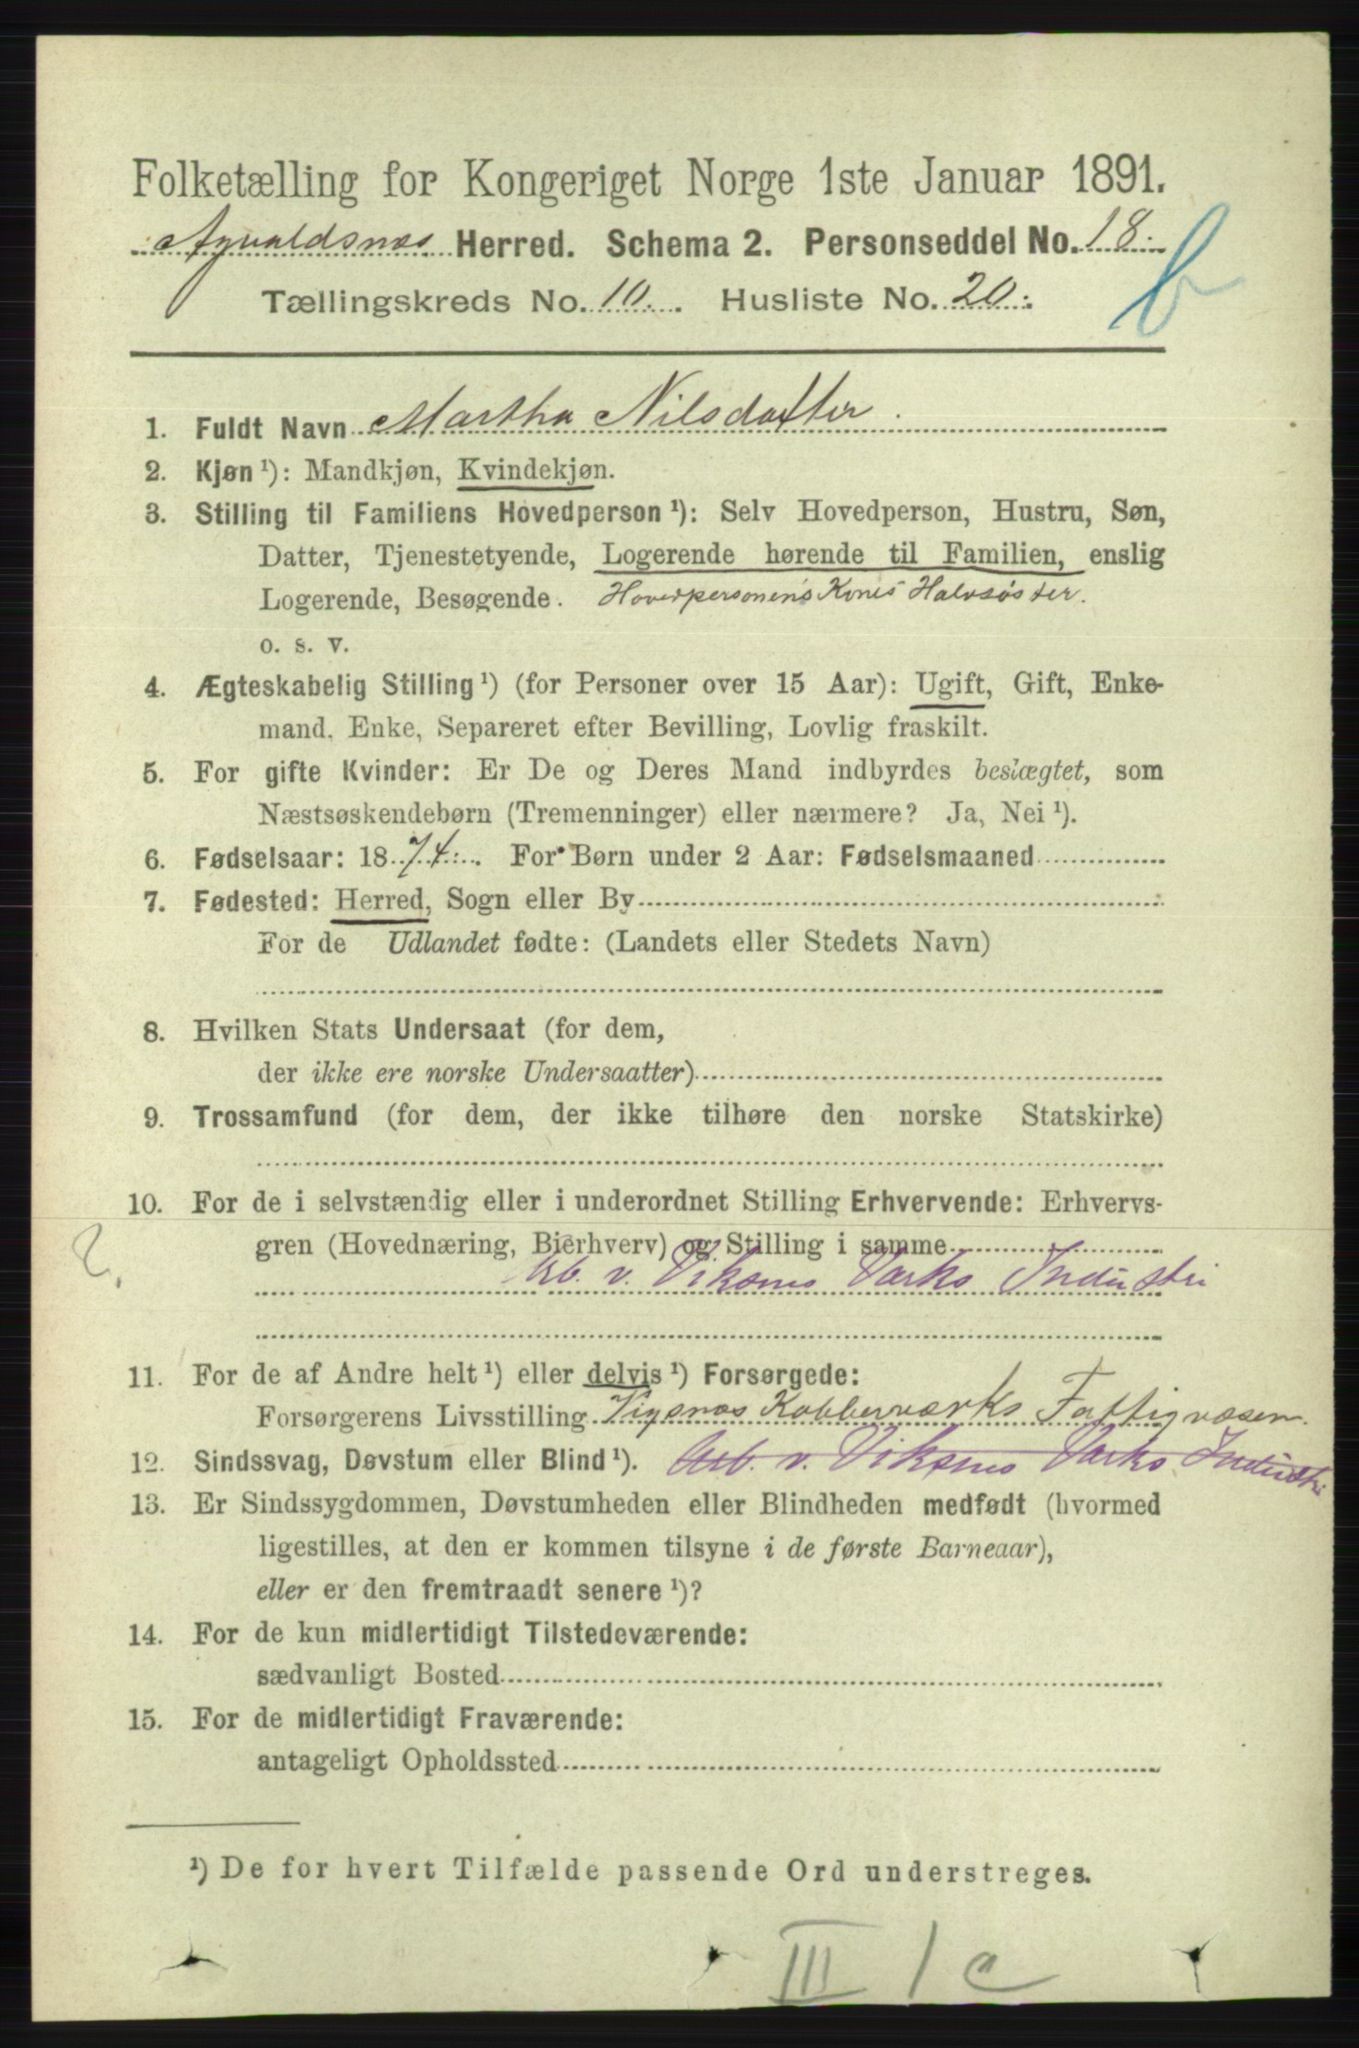 Folketælling for Kongeriget Norge 1ste Januar 1891.
Agvaldsnæs Herred. Schema 2. Personseddel No. 18.
Tællingskreds No. 10. Husliste No. 20.
b
1. Fuldt Navn Martha Nilsdatter.
2. Kjøn ¹): Mandkjøn, Kvindekjøn.
3. Stilling til Familiens Hovedperson ¹): Selv Hovedperson, Hustru, Søn,
Datter, Tjenestetyende, Logerende hørende til Familien, enslig
Logerende, Besøgende. Hovedpersonens Kones Halvsøster.
o. s. v.
4. Ægteskabelig Stilling ¹) (for Personer over 15 Aar): Ugift, Gift, Enke-
mand, Enke, Separeret efter Bevilling, Lovlig fraskilt.
5. For gifte Kvinder: Er De og Deres Mand indbyrdes beslægtet, som
Næstsøskendebørn (Tremenninger) eller nærmere? Ja, Nei ¹).
6. Fødselsaar: 1874. For Børn under 2 Aar: Fødselsmaaned
7. Fødested: Herred, Sogn eller By
For de Udlandet fødte: (Landets eller Stedets Navn)
8. Hvilken Stats Undersaat (for dem,
der ikke ere norske Undersaatter)
9. Trossamfund (for dem, der ikke tilhøre den norske Statskirke)
10. For de i selvstændig eller i underordnet Stilling Erhvervende: Erhvervs-
gren (Hovednæring, Bierhverv) og Stilling i samme
2. Arb. v. Viksnes Værks Industri
11. For de af Andre helt ¹) eller delvis ¹) Forsørgede:
Forsørgerens Livsstilling Vigsnæs Kobberværks Fattigvæsen.
12. Sindssvag, Døvstum eller Blind ¹). Arb. v. Viksnes Værks Industri
13. Er Sindssygdommen, Døvstumheden eller Blindheden medfødt (hvormed
ligestilles, at den er kommen tilsyne i de første Barneaar),
eller er den fremtraadt senere ¹)?
14. For de kun midlertidigt Tilstedeværende:
sædvanligt Bosted
15. For de midlertidigt Fraværende:
antageligt Opholdssted
¹) De for hvert Tilfælde passende Ord understreges.
III 1 c